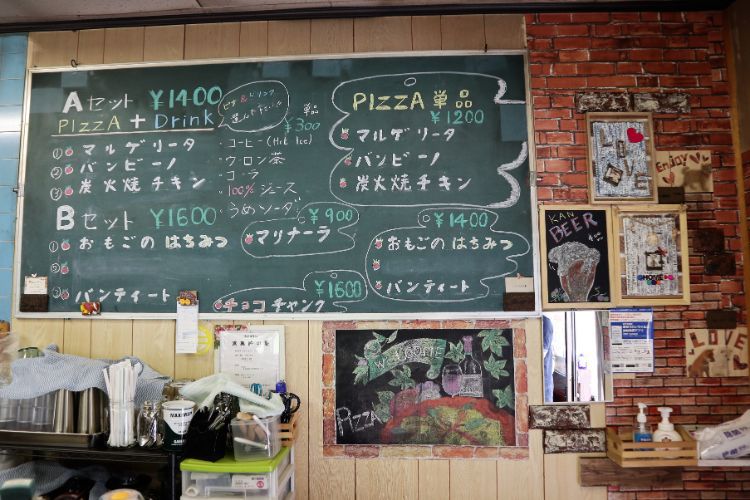 Aセット ¥1400
PIZZA + Drink
ピザ & ドリンク
選んで下さい
① マルゲリータ
② バンビーノ
③ 炭火焼チキン
単品
¥300
・コーヒー (Hot Ice)
・ウーロン茶
・コーラ
・100% ジュース
・うめソーダ
Bセット ¥1600
① おもごの はちみつ
②
③ バンティート
¥900
マリナーラ
チョコチャンク ¥1600
PIZZA 単品
¥1200
マルゲリータ
バンビーノ
炭火焼チキン
¥1400
おもごの はちみつ
バンティート
LOVE
Enjoy
KAN
BEER
HOME
LOVE
WELCOME
PIZZA